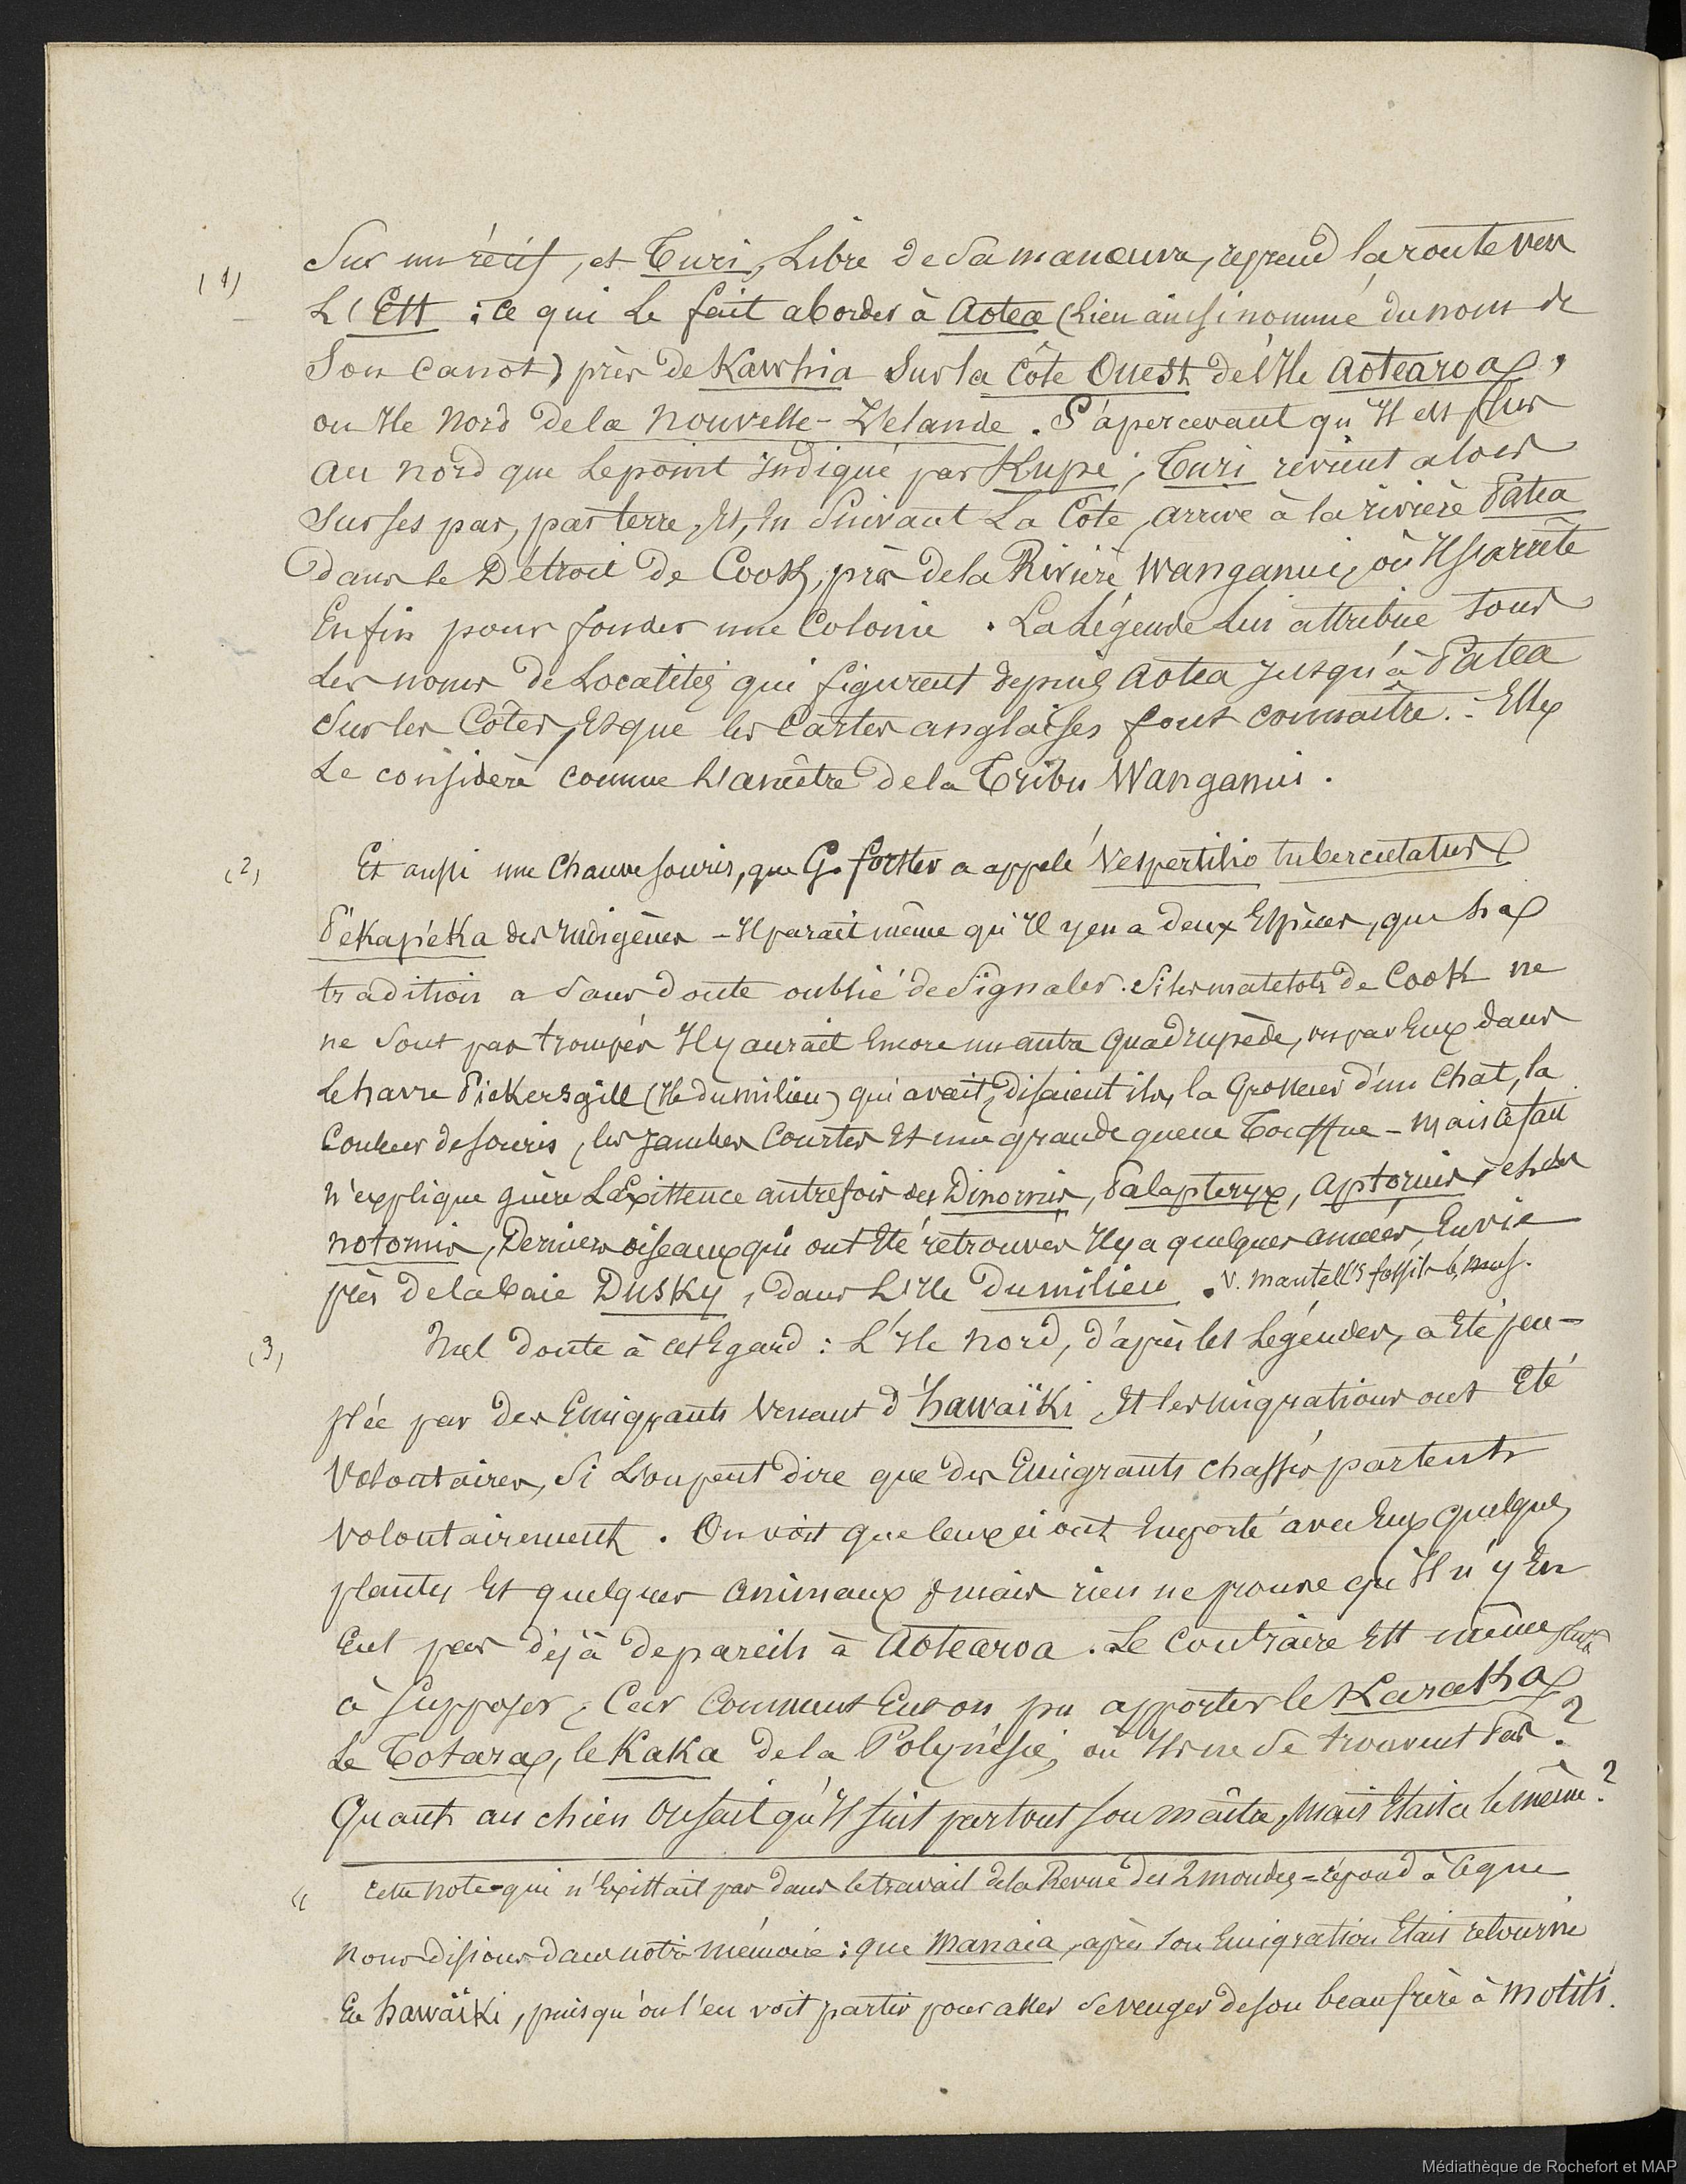 (1) Sur un récif, et Turi, Libre de Sa manœuvre, reprend la route vers
L'Est : ce qui Le fait aborder à Aotea (Lieu ainsi nommé du nom de
Son Canot) près de Kawhia Sur la Côte Ouest de l'Ile Aotearoa,
ou Ile Nord de la Nouvelle-Zélande. S'apercevant qu'Il est plus
au nord que Le point Indiqué par Kupe, Turi revient alors
sur ses pas, par terre, Et, En Suivant La Côte, arrive à la rivière Patea
dans le Détroit de Cook, près de la Rivière Wanganui, où Il s'arrête
Enfin pour fonder une Colonie. La Légende Lui attribue tous
Les noms de Localités qui figurent depuis Aotea Jusqu'à Patea
Sur les Côtes, Et que les Cartes anglaises font connaître. - Elle
Le considère comme L'ancêtre de la Tribu Wanganui.
(2) Et aussi une Chauve souris, que G. Forster a appelé Vespertilio tuberculatus
Pékapéka des Indigènes - Il parait même qu'Il y en a deux Espèces, que La
tradition a Sans doute oublié de Signaler. Si les matelots de Cook ne
ne Sont pas trompés Il y aurait Encore un autre quadrupède, vu par Eux dans
Le havre Pickersgill (Ile du milieu) qui avait, disaient ils, la Grosseur d'un Chat, la
Couleur de souris, les Jambes Courtes Et une grande queue Touffue - mais ce fait
n'explique guère L'Existence autrefois des Dinornis, Palapteryx, Aptornis, et des
notornis, Derniers oiseaux qui ont Eté retrouvés Il y a quelques années, En vie
près de la baie Dusky, dans L'Ile du milieu. V. Mantell's fossils
(3) Nul doute à cet Egard : L'Ile Nord, d'après les Légendes, a Eté peu-
plée par des Emigrants Venant d'hawaïki, Et les migrations ont Eté
Volontaires, Si L'on peut dire que des Emigrants chassés partent
Volontairement. On voit que Ceux ci ont Emporté avec Eux quelques
plantes Et quelques animaux, mais rien ne prouve qu'Il n'y En
Eut pas déjà de pareils à Aotearoa. Le Contraire Est même plutôt
à Supposer, Car Comment Eut on pu apporter le Karaka,
Le Totara, le Kaka de la Polynésie, où Ils ne Se trouvent Pas ?
Quant au chien On sait qu'Il suit partout son maître, Mais Etait ce le même ?
" Cette note - qui n'Existait pas dans le travail de la Revue des 2 mondes = répond à ce que
nous disions dans notre mémoire : que Manaia, après son Emigration Etait retourné
En hawaïki, puisqu'on l'en voit partir pour aller Se venger de son beau frère à Motiti.
Médiathèque de Rochefort et MAP